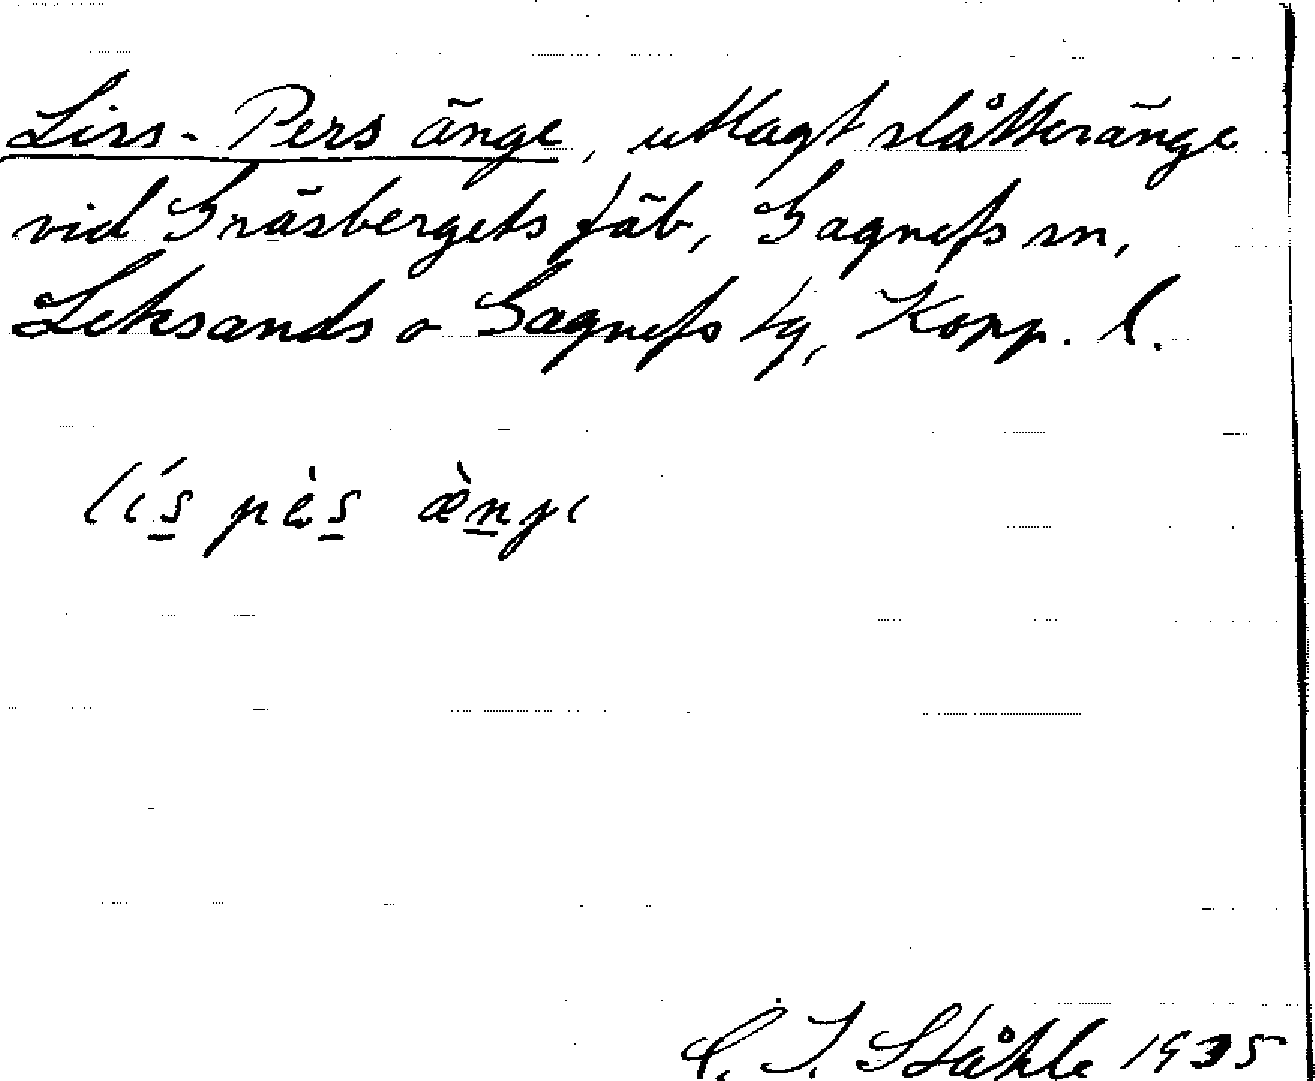 Lirs-Pers änge, utlagt slåtteränge
vid Gräsbergets fäb, Gagnefs sn,
Leksands o Gagnefs tg, Kopp. l.
lís pès ænge
C. I. Ståhle 1935